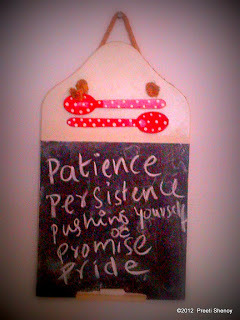 Patience
Persistence
pushing yourself
of
promise
Pride
©2012 Preeti Shenoy